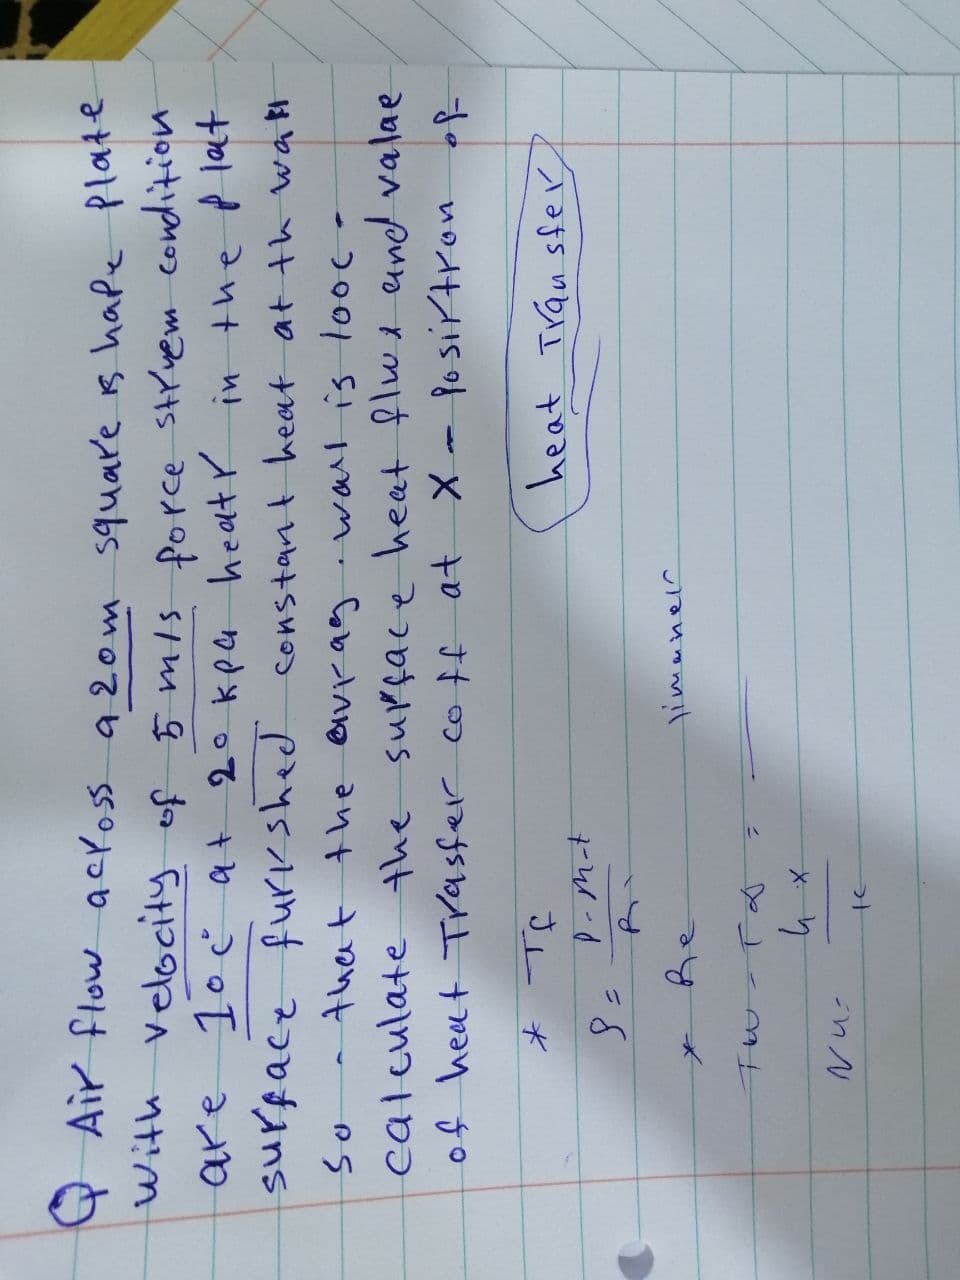 Q Air flow across a 20m square shape plate
with velocity of 5 m/s force strem condition
are 10c° at 20 kpa heatr in the plat
surface furrshed constant heat at th wall
so - that the avrag. wall is 100c -
calculate the surface heat flux and value
of heat Trasfer coff at X - Posirtron of
heat Transfer
* Tf
ρ =
* Re limaner
Tw - T∞ =
Nu = hx / k